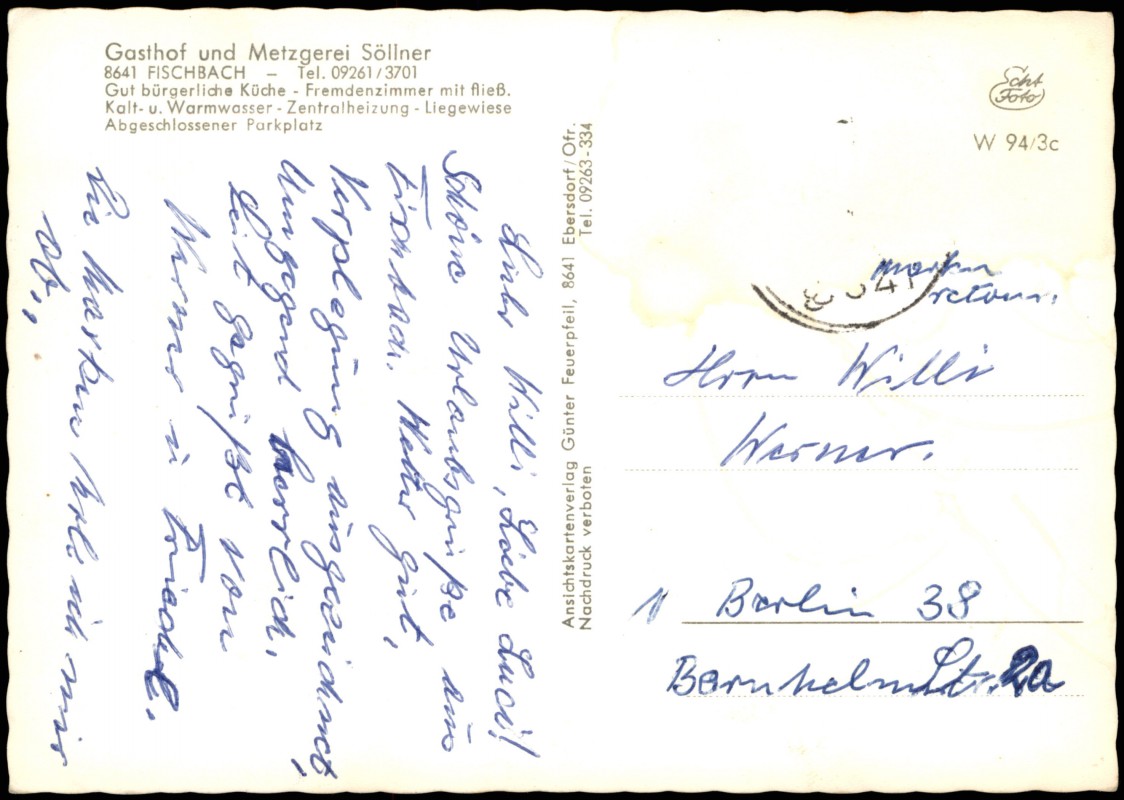 Gasthof und Metzgerei Söllner
8641 FISCHBACH – Tel. 09261/3701
Gut bürgerliche Küche - Fremdenzimmer mit fließ.
Kalt- u. Warmwasser - Zentralheizung - Liegewiese
Abgeschlossener Parkplatz
Lieber Willi, Liebe Luci!
Schöne Urlaubsgrüße aus
Fischbach. Wetter gut,
Verplegung ausgezeichnet,
Umgegend herrlich.
Seit gegrüßt von
Werner u Friedel.
Die Marken hole ich mir
ab.
Ansichtskartenverlag Günter Feuerpfeil, 8641 Ebersdorf/Ofr.
Nachdruck verboten Tel. 09263-334
Echt
Foto
W 94/3c
8641
marken
retour.
Herrn Willi
Werner.
1 Berlin 38
Bernhelm Str. 2a